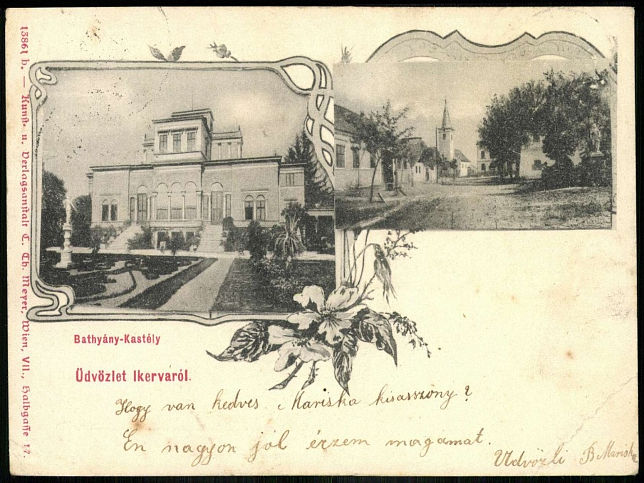 13861 b. — Kunst- u. Verlagsanstalt C. Th. Meyer, Wien, VII., Halbgasse 17.
Bathyány-Kastély
Üdvözlet Ikervárol.
Hogy van kedves Mariska kisasszony?
Én nagyon jol érzem magamat.
Üdvözli B Mariska